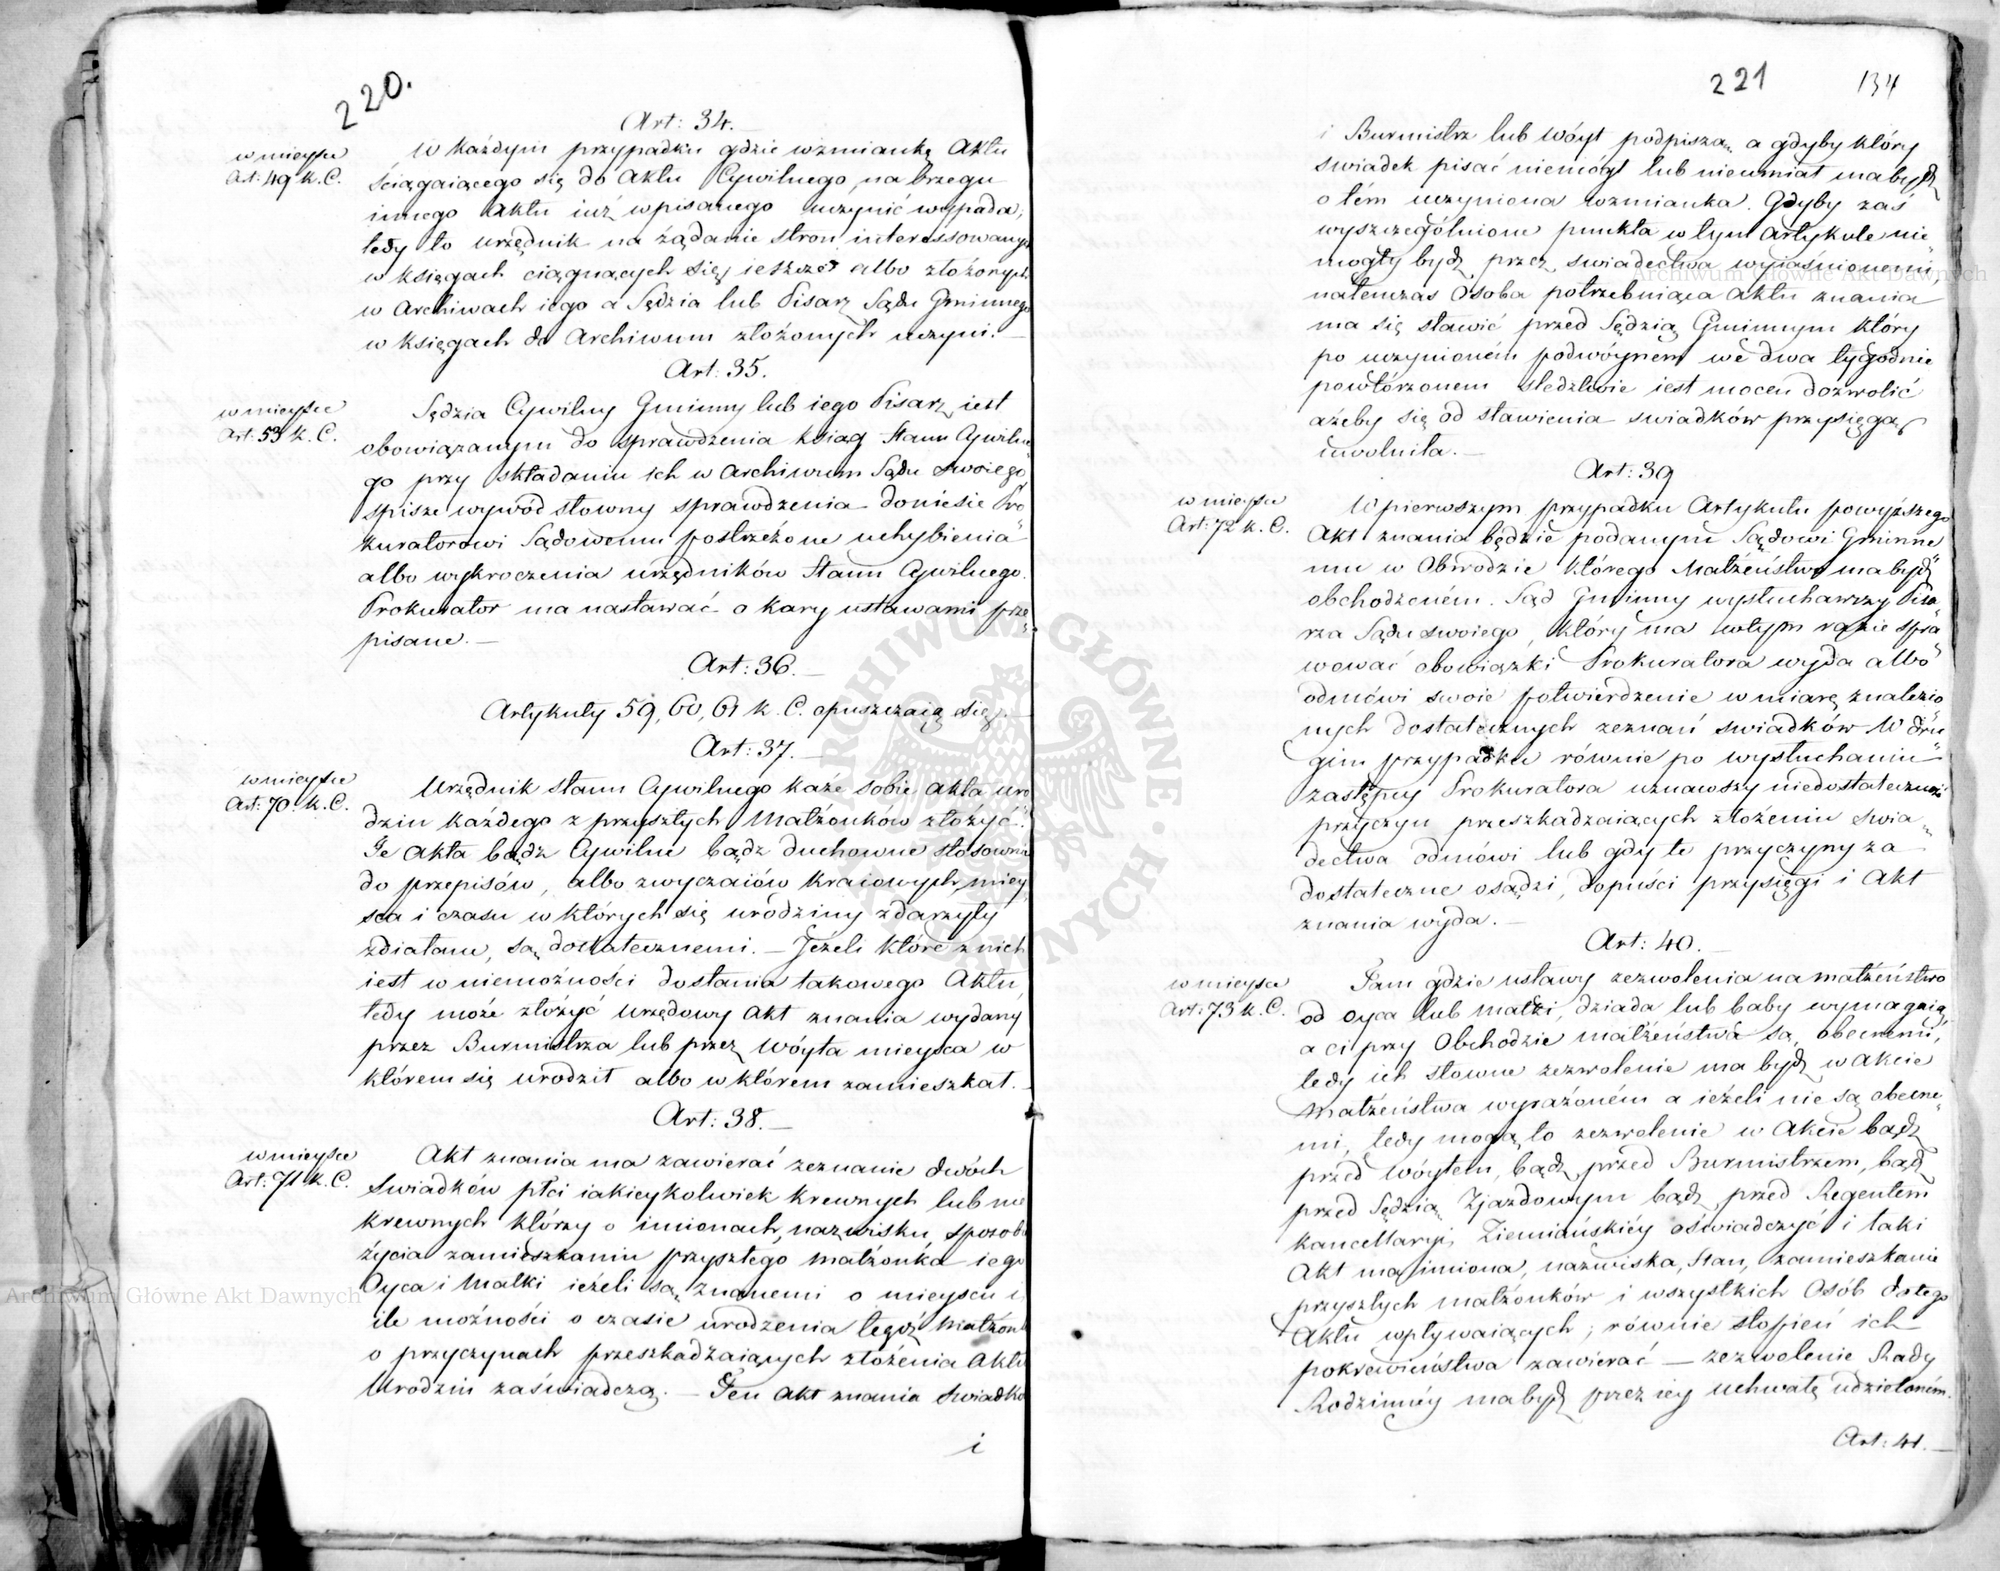 220.
Art: 34.
w mieysce
Art: 49 K. C.
W każdym przypadku gdzie wzmiankę Aktu
sciągaiącego się do Aktu Cywilnego na brzegu
innego Aktu iuż wpisanego uczynić wypada,
tedy to urzędnik na żądanie stron interessowanych
w księgach ciągnących się ieszcze albo złożonych
w Archiwach iego a Sędzia lub Pisarz Sądu Gminnego
w księgach do Archiwum złożonych uczyni. —
Art: 35.
w mieysce
Art: 53 K. C.
Sędzia Cywilny Gminny lub iego Pisarz iest
obowiązanym do sprawdzenia ksiąg Stanu Cywilne
go przy składaniu ich w Archiwum Sądu swoiego
spisze wywód słowny sprawdzenia doniesie Pro
kuratorowi Sądowemu postrzeżone uchybienia
albo wykroczenia urzędników Stanu Cywilnego.
Prokurator ma nastawać o kary ustawami prze
pisane. —
Art: 36. —
Artykuły 59, 60, 61 K. C. opuszczaią się. —
Art: 37. —
w mieysce
Art: 70. K. C.
Urzędnik stanu Cywilnego każe sobie akta uro
dzin każdego z przyszłych Małżonków złożyć.
Te Akta bądź Cywilne bądz duchowne stosownie
do przepisów, albo zwyczaiów kraiowych miey
sca i czasu w których się urodziny zdarzyły
zdziałane, są dostatecznemi. — Jeżeli które z nich
iest w niemożności dostania takowego Aktu,
tedy może złożyć urzędowy Akt znania wydany
przez Burmistrza lub przez Wóyta mieysca w
którem się urodził albo w którem zamieszkał.
Art: 38. —
w mieysce
Art: 71 K. C.
Akt znania ma zawierać zeznanie dwóch
Swiadków płci iakieykolwiek krewnych lub nie
krewnych którzy o imionach, nazwisku, sposobie
życia zamieszkaniu przyszłego małżonka iego
Oyca i Matki ieżeli są znanemi o mieyscu i
ile możności o czasie urodzenia tegoż Małżonka
o przyczynach przeszkadzaiących złożenia Aktu
Urodzin zaświadczą. — Ten Akt znania Swiadko
i
221
134
i Burmistrz lub Wóyt podpiszą a gdyby który
swiadek pisać niemógł lub nieumiał ma bydź
o tém uczyniona wzmianka. Gdyby zaś
wyszczególnione punkta w tym Artykule nie
mogły bydź przez swiadectwa wyiaśnionemi,
natenczas Osoba potrzebuiąca Aktu znania
ma się stawić przed Sędzią Gminnym który
po uczynioném podwóynem we dwa tygodnie
powtórzonem sledztwie iest mocen dozwolić
ażeby się od stawienia swiadków przysięgą
uwolniła. —
Art: 39
w mieysce
Art: 72 K. C.
W pierwszym przypadku Artykułu powyższego
Akt znania będzie podanym Sądowi Gminne
mu w Obwodzie którego Małżeństwo ma bydź
obchodzoném. Sąd Gminny wysłuchawszy Pisa
rza Sądu swoiego, który ma w tym razie spra
wować obowiązki Prokuratora wyda albo
odmówi swoie potwierdzenie w miarę znalezio
nych dostatecznych zeznań swiadków W dru
gim przypadku równie po wysłuchaniu
zastępcy Prokuratora uznawszy niedostateczność
przyczyn przeszkadzaiących złożeniu swia
dectwa odmówi lub gdy te przyczyny za
dostateczne osądzi, dopuści przysięgi i Akt
znania wyda. —
Art: 40. —
w mieysce
Art: 73 K. C.
Tam gdzie ustawy zezwolenia na małżeństwo
od oyca lub matki, dziada lub baby wymagaią,
a ci przy Obchodzie małżeństwa są obecnemi,
tedy ich słowne zezwolenie ma bydź w Akcie
Małżeństwa wyrażoném a ieżeli nie są obecne
mi, tedy mogą to zezwolenie w Akcie bądź
przed Wóytem, bądź przed Burmistrzem, bądź
przed Sędzią Zjazdowym bądź przed Regentem
kancellaryi Ziemiańskiéy oświadczyć i taki
Akt ma imiona, nazwiska, stan, zamieszkanie
przyszłych małżonków i wszystkich Osób do tego
Aktu wpływaiących; równie stopień ich
pokrewieństwa zawierać — zezwolenie Rady
Rodzinnéy ma bydź przez iey uchwałę udzieloném.
Art: 41. —
Archiwum Główne Akt Dawnych
Archiwum Główne Akt Dawnych
ARCHIWUM GŁÓWNE AKT DAWNYCH